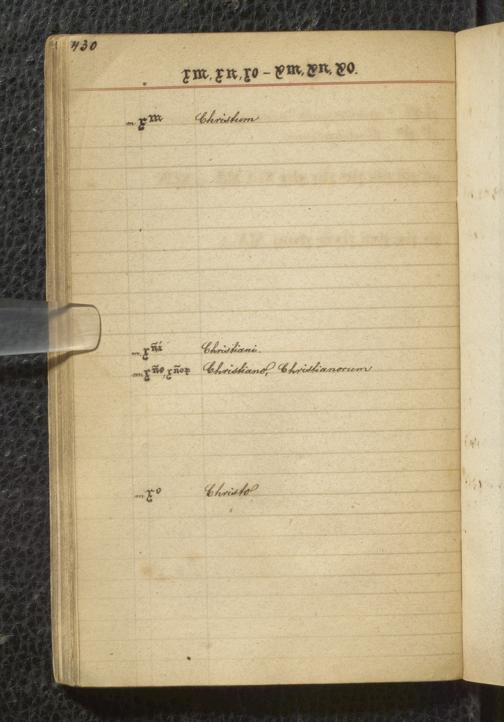 430
xm, xn, xo – ym, yn, yo.
m xᵐ Christum
m xñi Christiani.
m xño, xñoꝝ Christiano, Christianorum
m xᵒ Christo